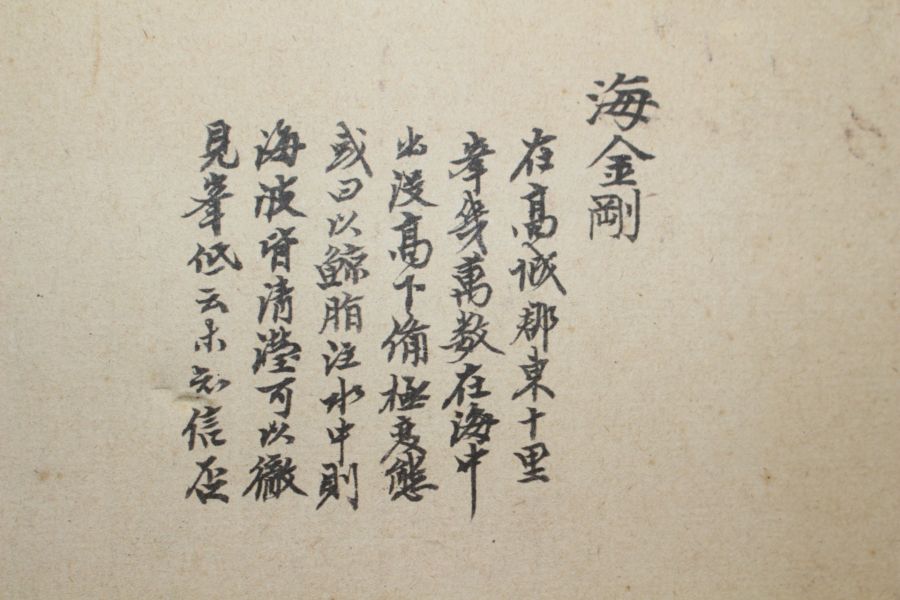 海金剛
在高城郡東十里
峯幾萬數在海中
出没高下備極変態
或曰以鯨脂注水中則
海波皆清瀅可以徹
見峯低云未知信否